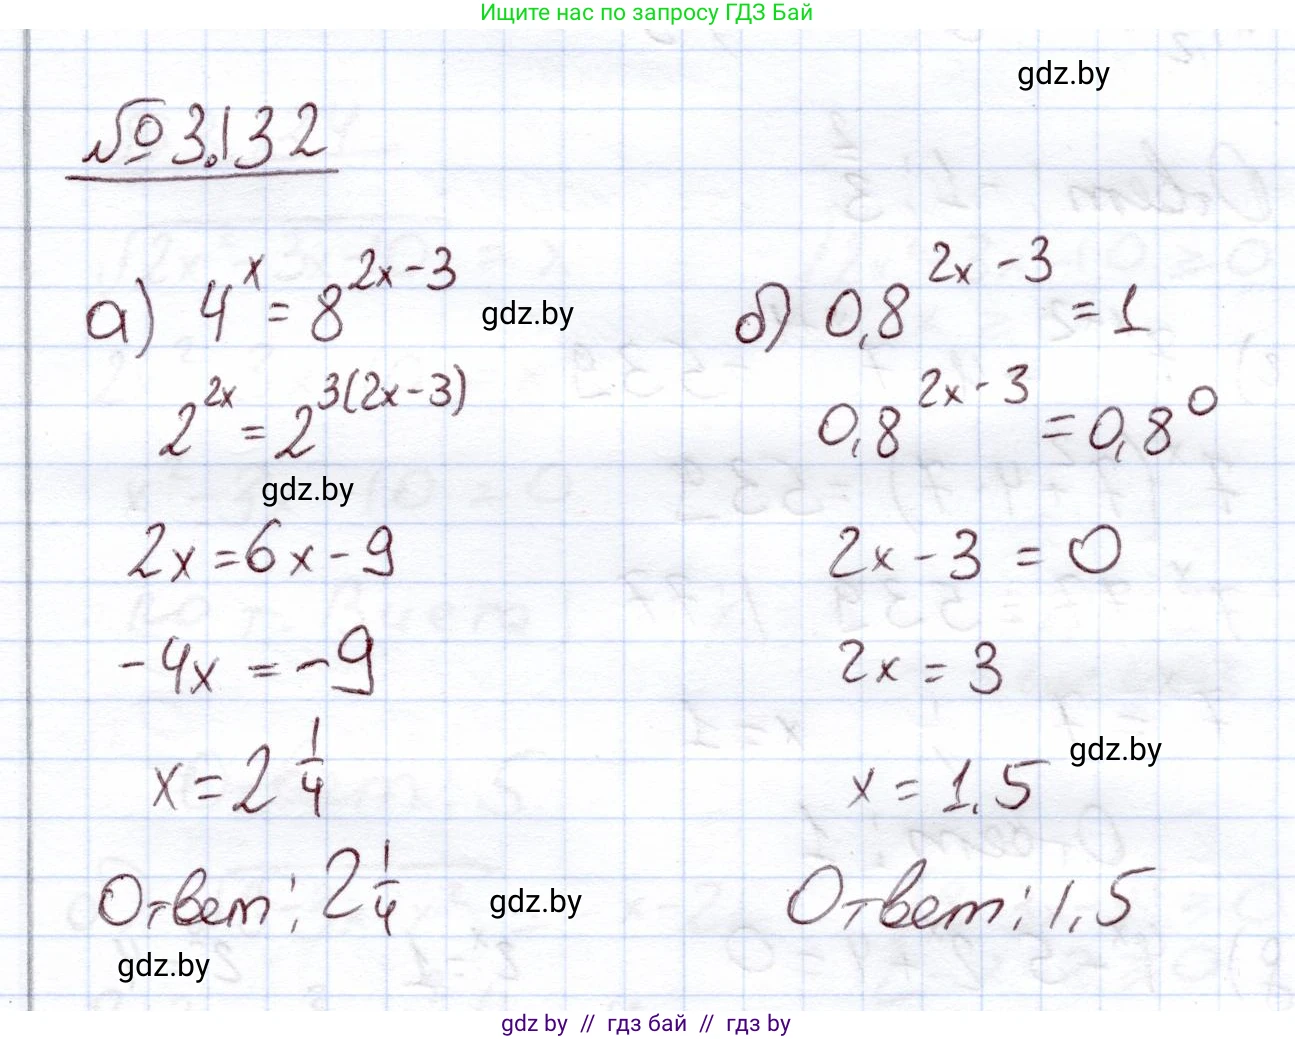 Ищите нас по запросу ГДЗ Бай
gdz.by
№ 3.132
а) 4^x = 8^(2x-3)
gdz.by
2^(2x) = 2^(3(2x-3))
gdz.by
2x = 6x - 9
-4x = -9
x = 2 1/4
Ответ: 2 1/4
gdz.by
gdz.by
б) 0,8^(2x-3) = 1
0,8^(2x-3) = 0,8^0
2x - 3 = 0
2x = 3
gdz.by
x = 1,5
Ответ: 1,5
gdz.by // гдз бай // гдз by